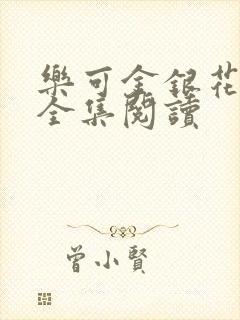 樂可金銀花
全集閱讀
曾小賢